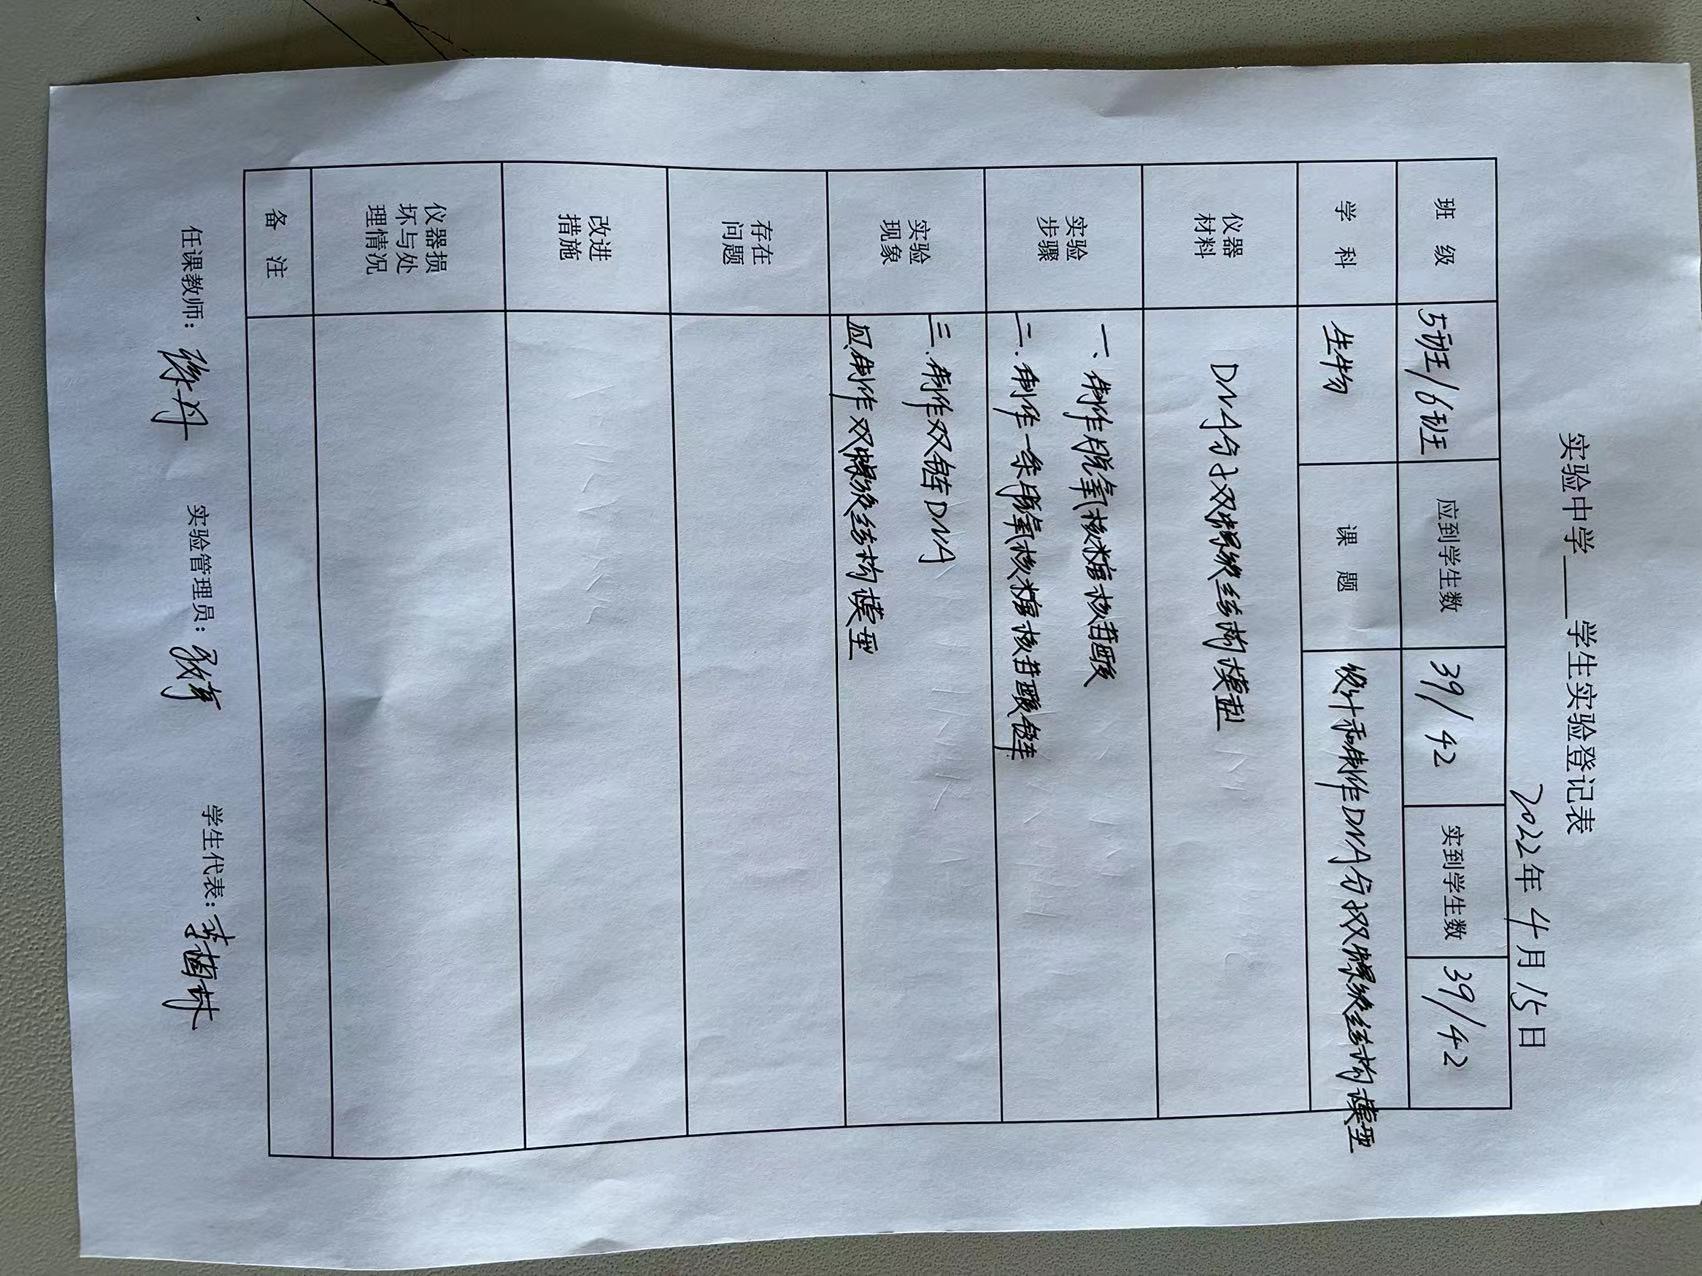 实验中学___学生实验登记表
2022年4月15日
班 级 5班/6班 应到学生数 39/42 实到学生数 39/42
学 科 生物 课 题 设计和制作DNA分子双螺旋结构模型
仪器
材料
DNA分子双螺旋结构模型
实验
步骤
一、制作脱氧核糖核苷酸
二.制作一条脱氧核糖核苷酸链
实验
现象
三.制作双链DNA
四.制作双螺旋结构模型
存在
问题
改进
措施
仪器损
坏与处
理情况
备 注
任课教师: 徐丹 实验管理员: 学生代表: